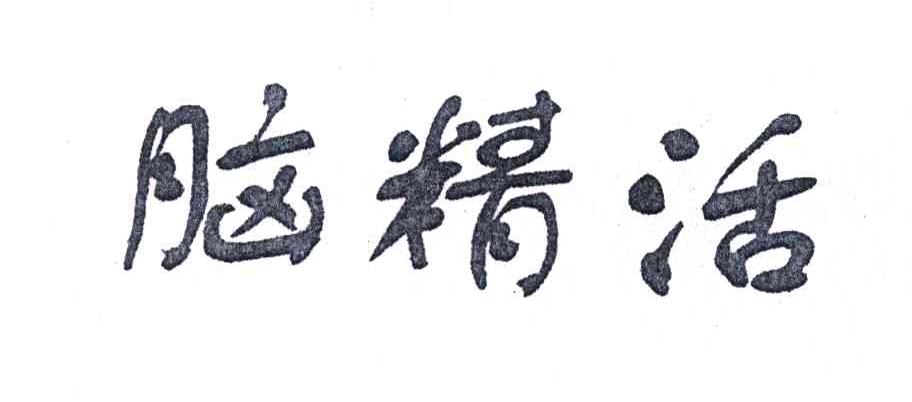 脑精活